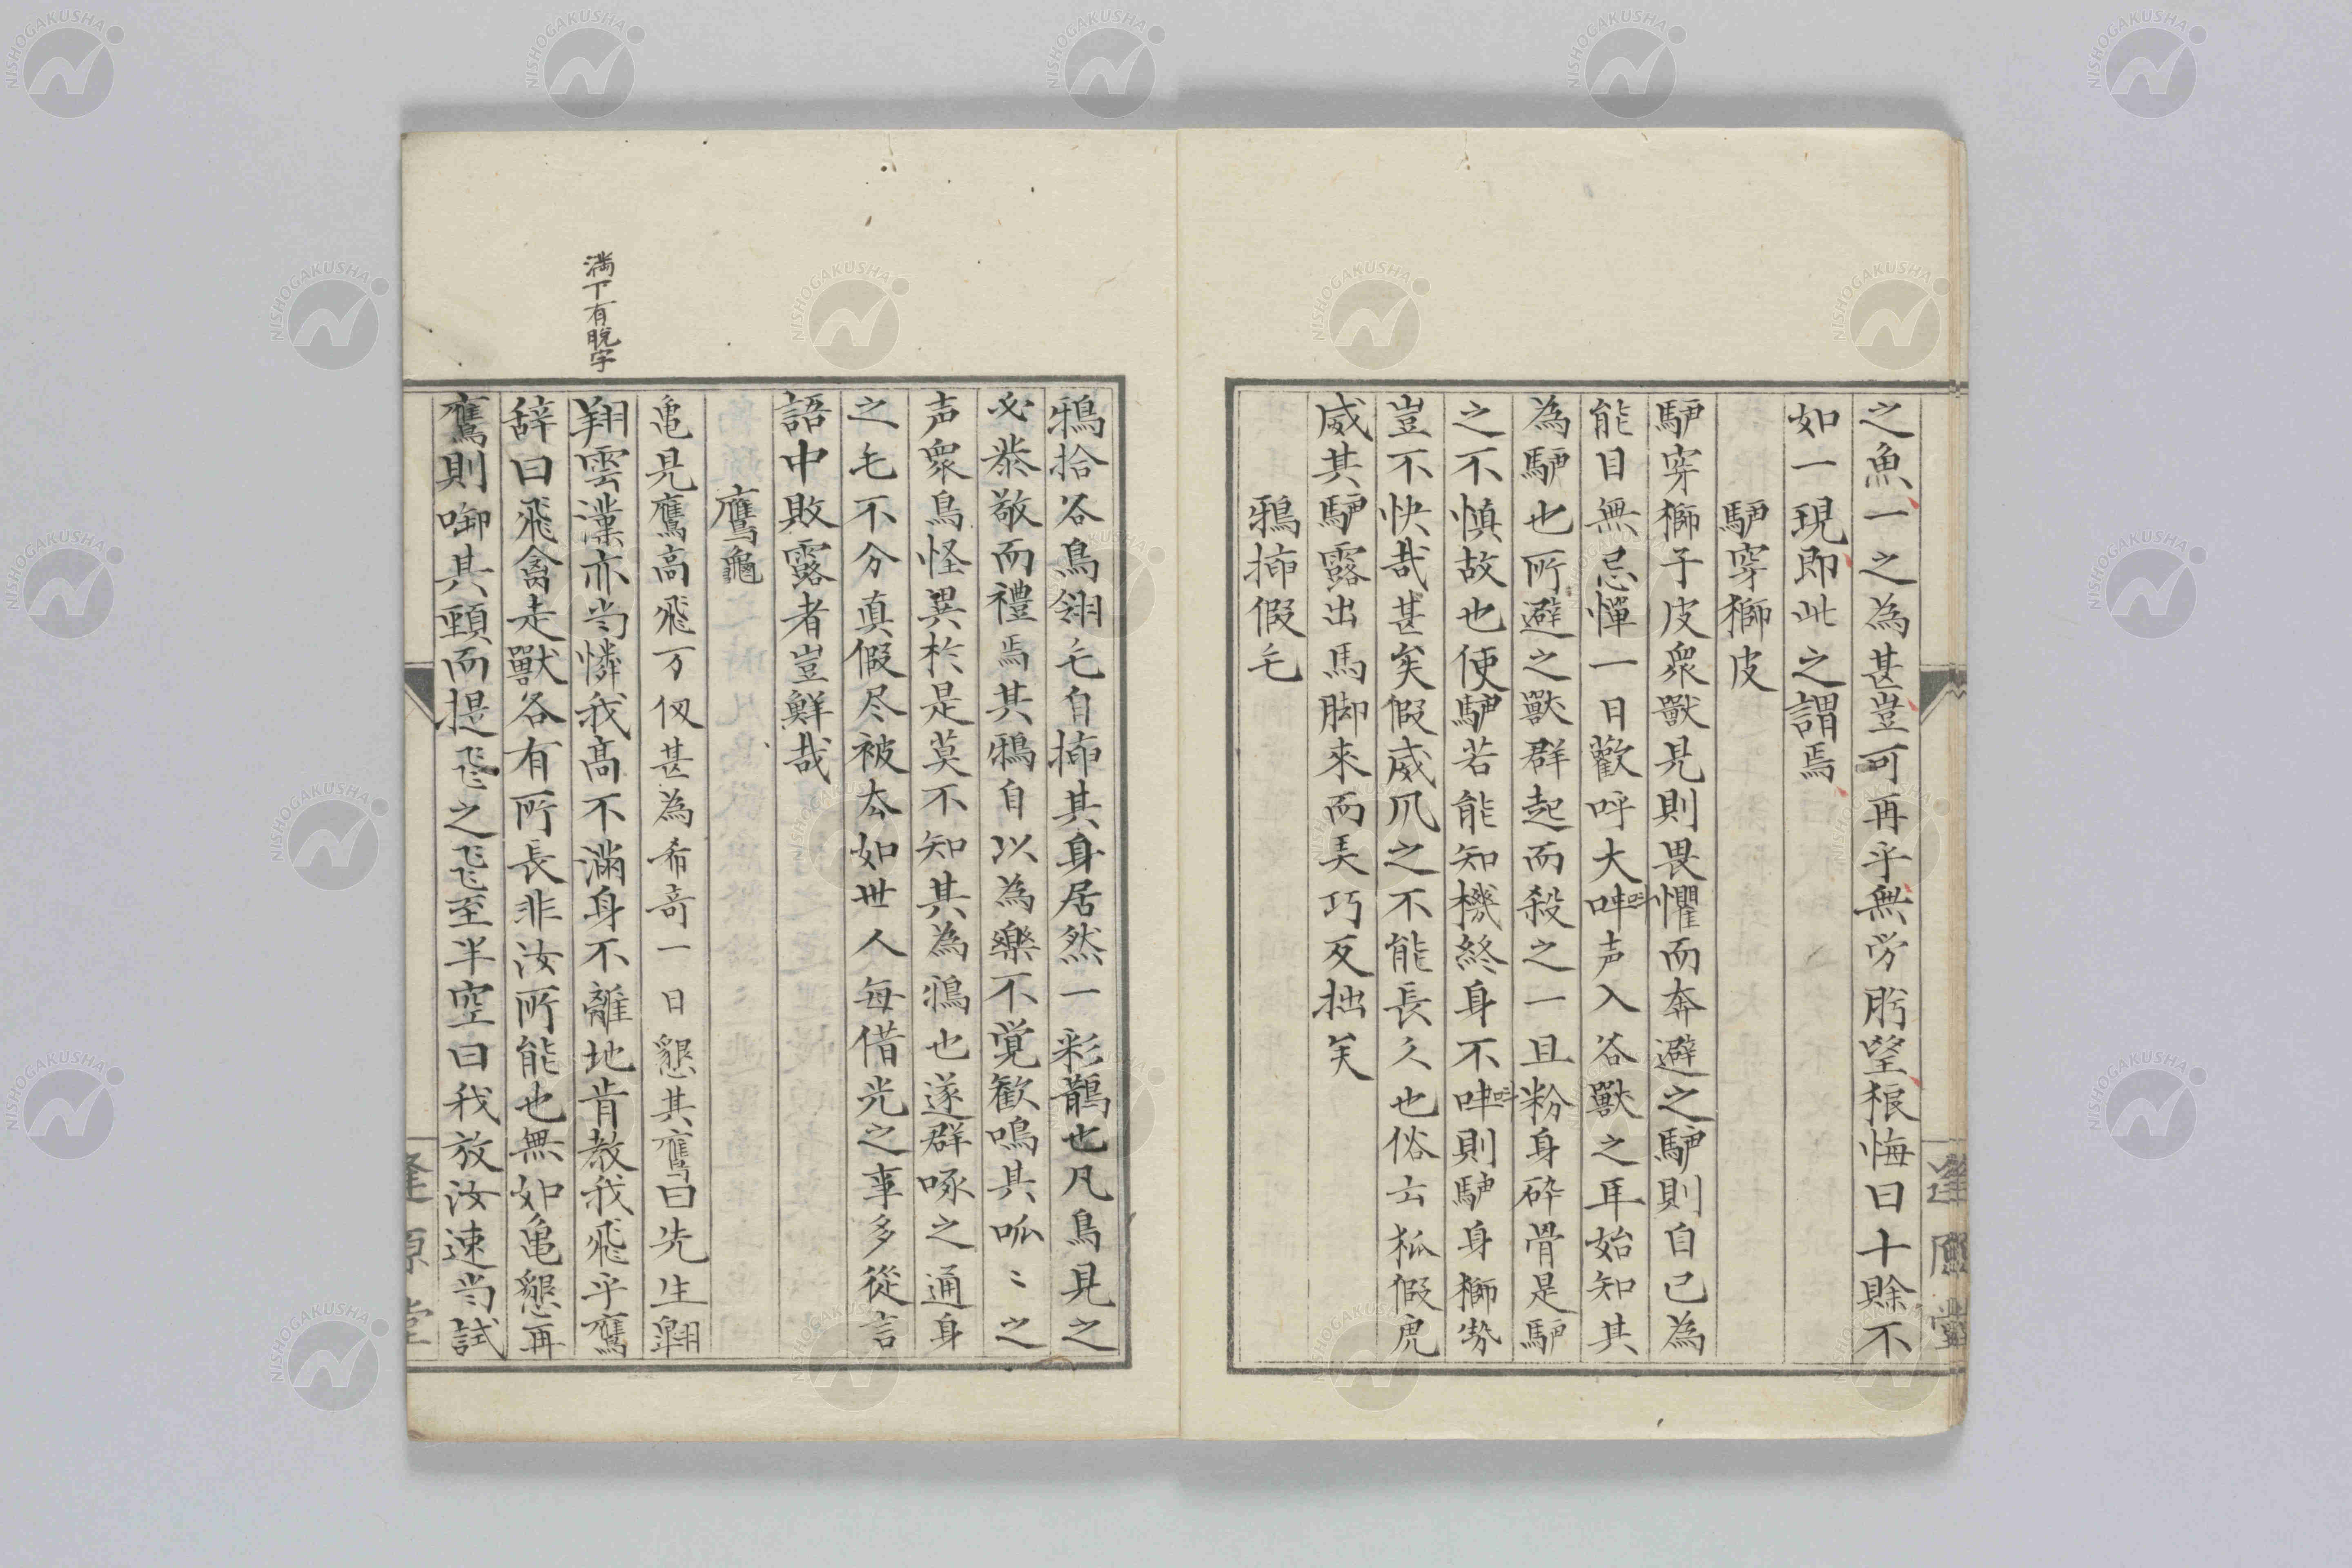 之魚一之為甚豈可再乎無労肹望根悔曰十賖不
如一現即此之謂焉
驢穿獅皮
驢穿獅子皮衆獸見則畏懼而奔避之驢則自己為
能日無忌憚一日歡呼大呌声入谷獸之耳始知其
為驢也所避之獸群起而殺之一旦粉身砕骨是驢
之不慎故也使驢若能知機終身不呌則驢身獅勢
豈不快哉甚矣假威爪之不能長久也俗云狐假虎
威其驢露出馬脚來而美巧反拙矣
鴉揷假毛
鴉拾各鳥翎毛自揷其身居然一彩鵲也凡鳥見之
必恭敬而禮焉其鴉自以為樂不覚歓鳴其呱〻之
声衆鳥怪異於是莫不知其為鴉也遂群啄之通身
之毛不分真假尽被去如世人每借光之事多從言
語中敗露者豈鮮哉
鷹龜
亀見鷹高飛万仭甚為希竒一日懇其鷹曰先生翺
翔雲漢亦当憐我高不滿身不離地肯教我飛乎鷹
辞曰飛禽走獸各有所長非汝所能也無如亀懇再
鷹則啣其頸而提飛之飛至半空曰我放汝速当試
満下有脱字
逢原堂
逢原堂
NISHOGAKUSHA